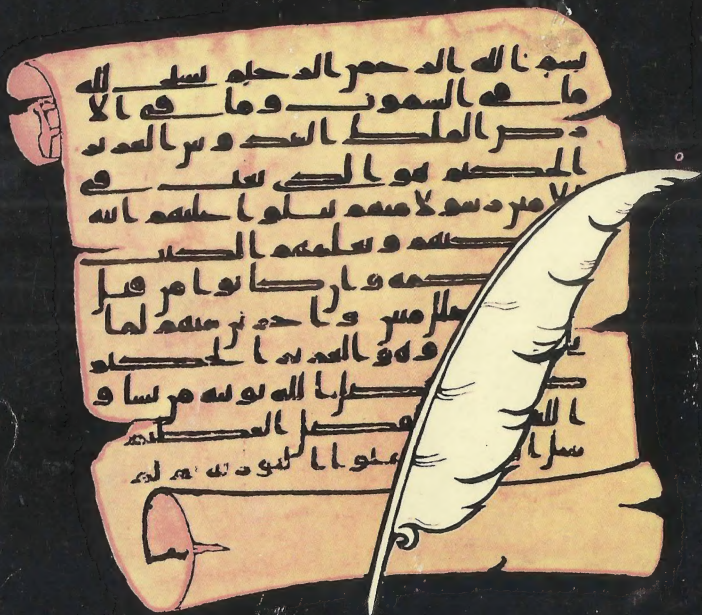 بسم الله الرحمن الرحيم يسبح لله
ما في السموت وما في الا
رض الملك القدوس العزيز
الحكيم هو الذي بعث في
الامين رسولا منهم يتلوا عليهم ايته
ويعلمهم الكتب
وان كانوا من قبل
مبين واخرين منهم لما
وهو العزيز الحكيم
فضل الله يوتيه من يشا و
الله الفضل العظيم
مثل حملوا التورية ثم لم